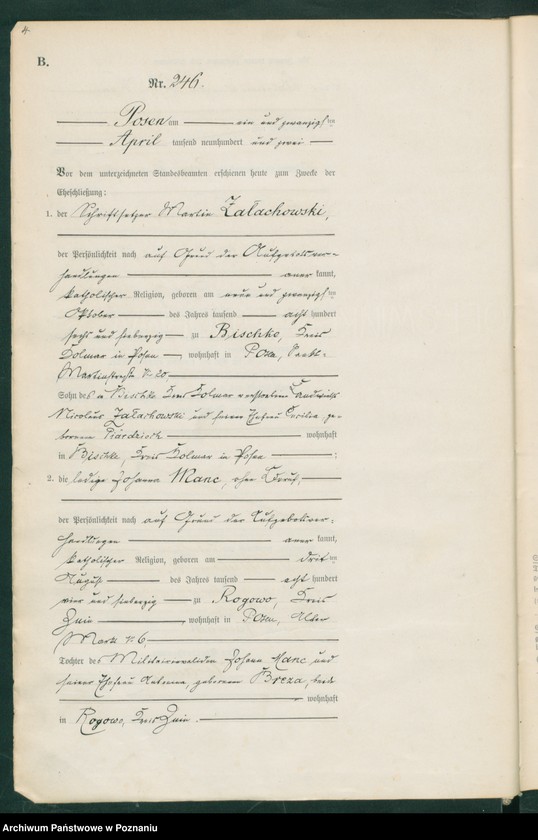 4.
B.
Nr. 246.
Posen am ein und zwanzigsten
April tausend neunhundert und zwei
Vor dem unterzeichneten Standesbeamten erschienen heute zum Zwecke der
Eheschließung:
1. der Schriftsetzer Martin Załachowski,
der Persönlichkeit nach auf Grund der Aufgebotsver-
handlungen aner kannt,
katholischer Religion, geboren am neun und zwanzigsten
Oktober des Jahres tausend acht hundert
sechs und siebenzig zu Bischke, Kreis
Kolmar in Posen wohnhaft in Posen, Sankt-
Martinstraße N. 20,
Sohn des in Bischke Kreis Kolmar verstorbenen Landwirths
Nicolaus Załachowski und seiner Ehefrau Cecilie ge-
borenen wohnhaft
in Bischke, Kreis Kolmar in Posen ;
2. die ledige Johanna Manc, ohne Beruf,
der Persönlichkeit nach auf Grund der Aufgebotsver-
handlungen aner kannt,
katholischer Religion, geboren am dritten
August des Jahres tausend acht hundert
vier und siebenzig zu Rogowo, Kreis
Znin wohnhaft in Posen, Alter
Markt N. 6,
Tochter des Militairinvaliden Johann Manc und
seiner Ehefrau Antonina, geborenen Breza, beide
wohnhaft
in Rogowo, Kreis Znin.
Archiwum Państwowe w Poznaniu